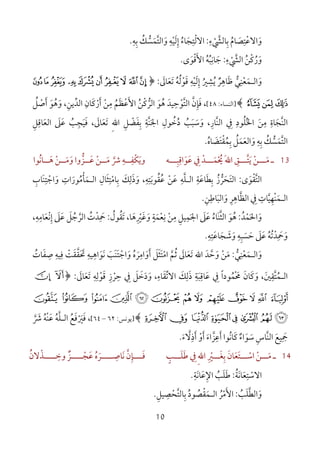 وَالاعْتِصَامُ بِالشَّيْءِ: الالْتِجَاءُ إِلَيْهِ وَالتَّمَسُّكُ بِهِ.
وَالرُّكْنُ مِنَ الشَّيْءِ: جَانِبُهُ الأَقْوَى.
وَالـمَعْنَى ظَاهِرٌ يُشِيْرُ إِلَيْهِ قَوْلُهُ تَعَالَى: ﴿ إِنَّ ٱللَّهَ لَا يَغْفِرُ أَن يُشْرَكَ بِهِۦ وَيَغْفِرُ مَا دُونَ
ذَٰلِكَ لِمَن يَشَآءُ ﴾ [النساء: ٤٨]، فَإِنَّ التَّوْحِيدَ هُوَ الرُّكْنُ الأَعْظَمُ مِنْ أَرْكَانِ الدِّينِ، وَهُوَ أَصْلُ
النَّجَاةِ مِنَ الْخُلُودِ فِي النَّارِ، وَسَبَبُ دُخُولِ الْجَنَّةِ بِفَضْلِ اللهِ تَعَالَى، فَيَجِبُ عَلَى الْعَاقِلِ
التَّمَسُّكُ بِهِ وَالعَمَلُ بِمُقْتَضَاهُ.
13 ـ مَـــنْ يَتَّـــقِ اللهَ يُحْمَـــدْ فِي عَوَاقِبِـــهِ وَيَكْفِـــهِ شَرَّ مَـــنْ عَـــزُّوا وَمَـــنْ هَـــانُوا
التَّقْوَى: التَّحَرُّزُ بِطَاعَةِ الله عَنْ عُقُوبَتِهِ، وَذَلِكَ بِامْتِثَالِ الـمَأْمُورَاتِ وَاجْتِنَابِ
الـمَنْهِيَّاتِ فِي الظَّاهِرِ وَالبَاطِنِ.
وَالْحَمْدُ: هُوَ الثَّنَاءُ عَلَى الْجَمِيلِ مِنْ نِعْمَةٍ وَغَيْرِهَا، تَقُولُ: حَمِدْتُ الرَّجُلَ عَلَى إِنْعَامِهِ،
وَحَمِدْتُهُ عَلَى حَسَبِهِ وَشَجَاعَتِهِ.
وَالـمَعْنَى: مَنْ وَحَّدَ اللهَ تَعَالَى ثُمَّ امْتَثَلَ أَوَامِرَهُ وَاجْتَنَبَ نَوَاهِيَهُ تَحَقَّقَتْ فِيهِ صِفَاتُ
الْمُتَّقِينَ، وَكَانَ مَحْمُوداً فِي عَاقِبَةِ ذَلِكَ الاتِّقَاءِ، وَدَخَلَ فِي حِرْزِ قَوْلِهِ تَعَالَى: ﴿ أَلَآ إِنَّ
أَوْلِيَآءَ ٱللَّهِ لَا خَوْفٌ عَلَيْهِمْ وَلَا هُمْ يَحْزَنُونَ ۝ ٱلَّذِينَ ءَامَنُوا۟ وَكَانُوا۟ يَتَّقُونَ
۝ لَهُمُ ٱلْبُشْرَىٰ فِي ٱلْحَيَوٰةِ ٱلدُّنْيَا وَفِي ٱلْءَاخِرَةِ ﴾ [يونس: ٦٢ - ٦٤]، فَيَرْفَعُ اللهُ عَنْهُ شَرَّ
جَمِيعِ النَّاسِ سَوَاءً كَانُوا أَعِزَّاءَ أَوْ أَذِلَّاءَ.
14 ـ مَـــنْ اسْـــتَعَانَ بِغَـــيْرِ اللهِ فِي طَلَـــبٍ فَـــإِنَّ نَـــاصِرَهُ عَجْـــزٌ وَخِـــذْلانُ
الاسْتِعَانَةُ: طَلَبُ الإِعَانَةِ.
وَالطَّلَبُ: الأَمْرُ الْمَقْصُودُ بِالتَّحْصِيْلِ.
10